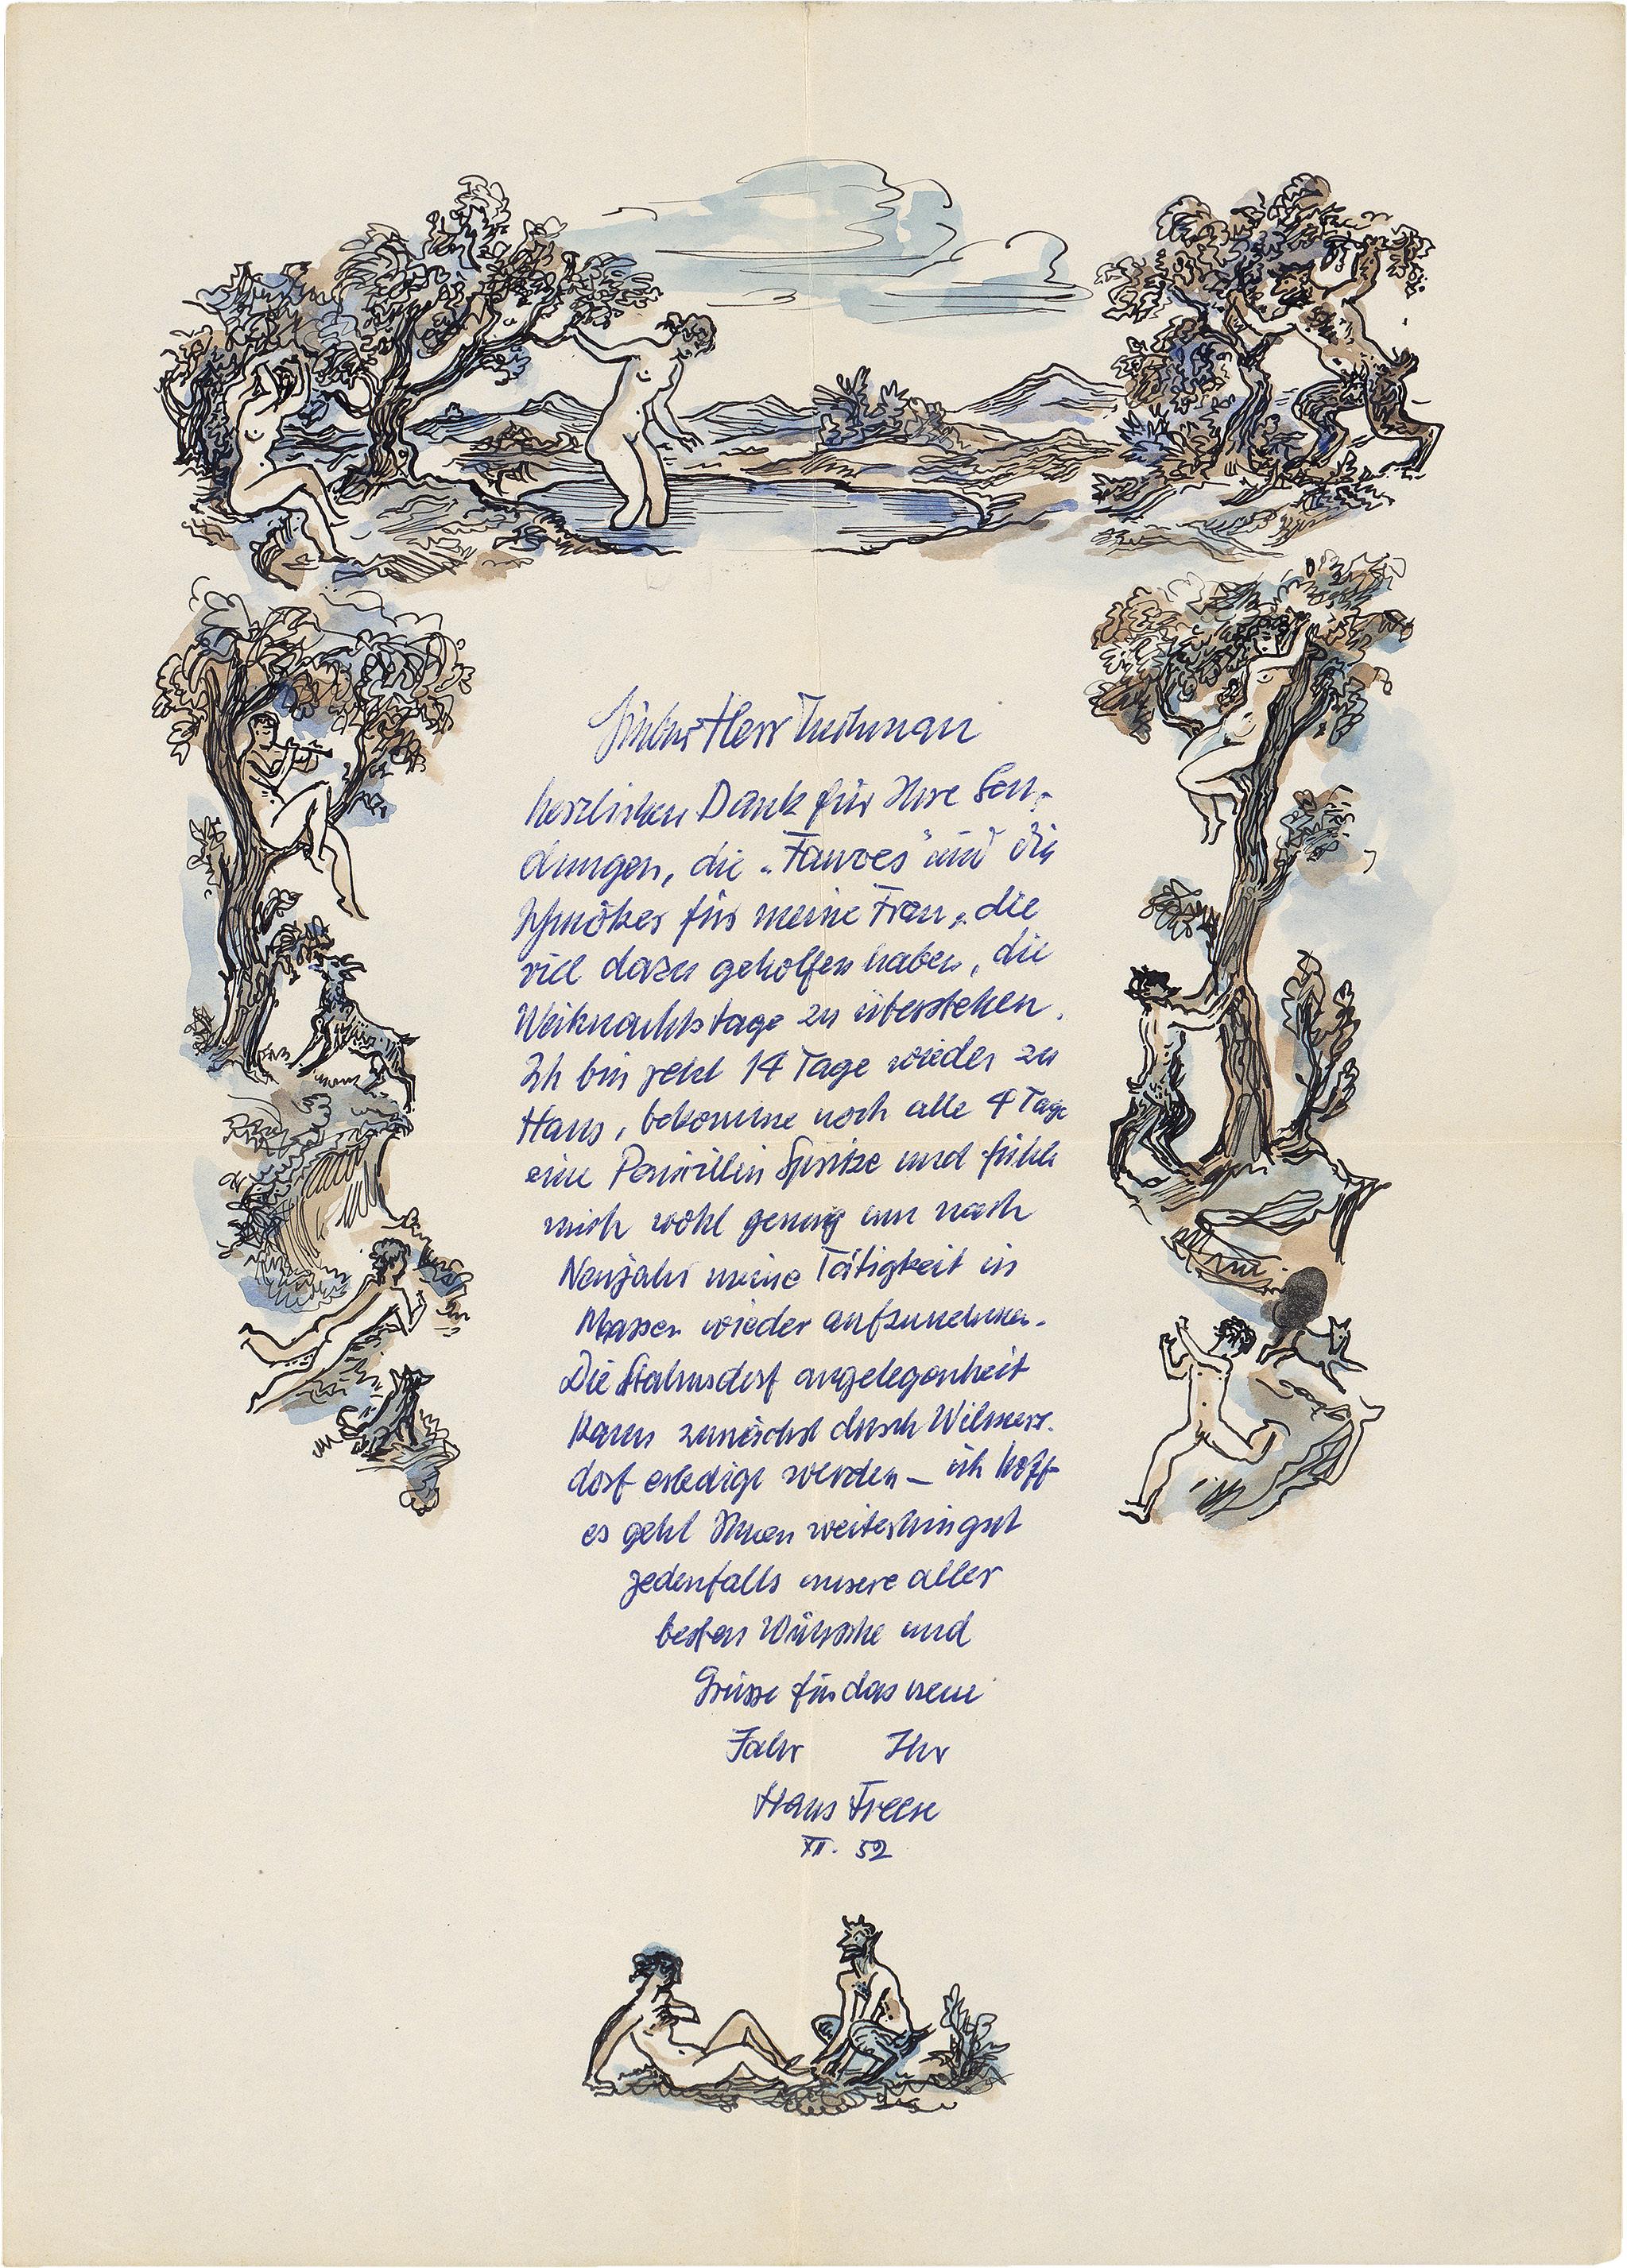 Lieber Herr
herzlichen Dank für Ihre Sen-
dungen, die „Fauves" und die
Schmöker für meine Frau, die
viel dazu geholfen haben, die
Weihnachtstage zu überstehen.
Ich bin jetzt 14 Tage wieder zu
Haus, bekomme noch alle 4 Tage
eine Penicillin Spritze und fühle
mich wohl genug um nach
Neujahr meine Tätigkeit in
Massen wieder aufzunehmen.
Die Stahnsdorf angelegenheit
kann zunächst durch Wilmers-
dorf erledigt werden – ich hoffe
es geht Ihnen weiterhin gut
jedenfalls unsere aller
besten Wünsche und
Grüsse für das neue
Jahr Ihr
Hans Freese
XII. 52